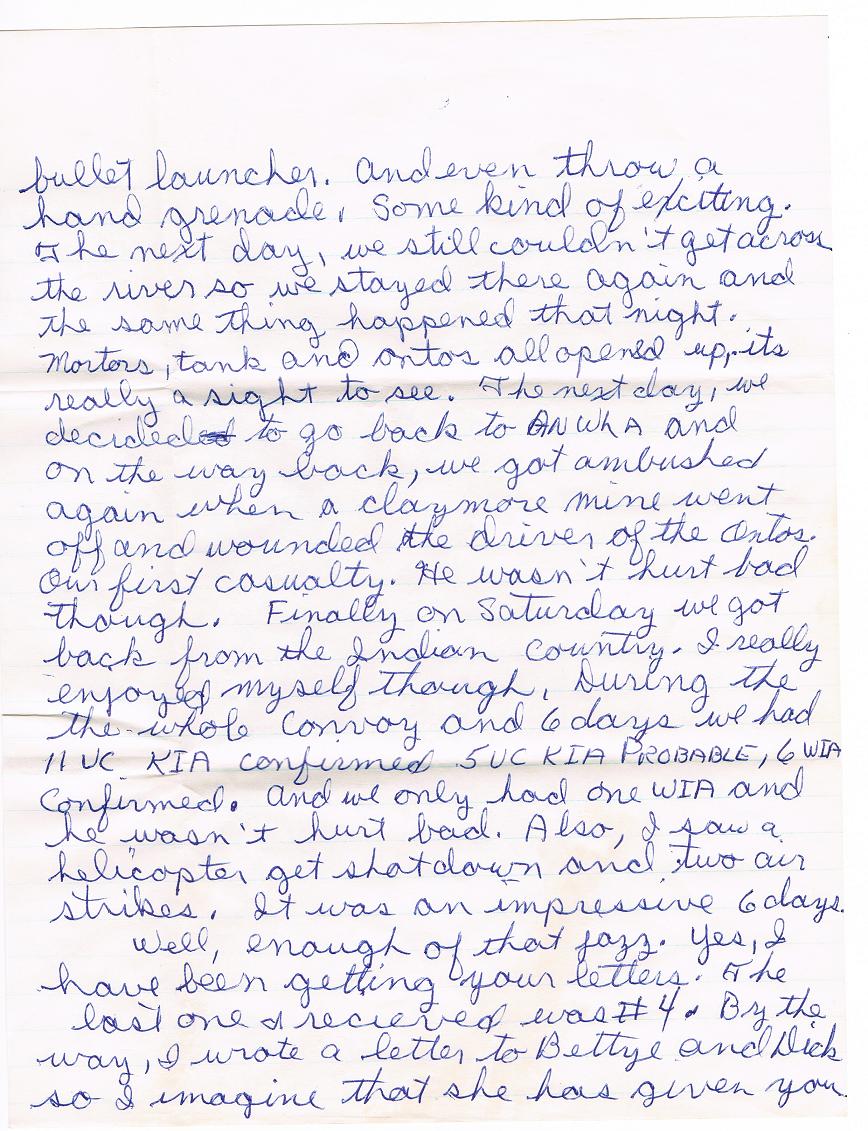 bullet launcher. And even throw a
hand grenade. Some kind of exciting.
The next day, we still couldn't get across
the river so we stayed there again and
the same thing happened that night.
Mortors, tank and ontos all opened up, its
really a sight to see. The next day, we
decided to go back to AN WhA and
on the way back, we got ambushed
again when a claymore mine went
off and wounded the driver of the Ontos.
Our first casualty. He wasn't hurt bad
though. Finally on Saturday we got
back from the Indian Country. I really
enjoyed myself though. During the
the whole Convoy and 6 days we had
11 VC KIA confirmed 5 VC KIA PROBABLE, 6 WIA
Confirmed. And we only had one WIA and
he wasn't hurt bad. Also, I saw a
helicopter get shot down and two air
strikes. It was an impressive 6 days.
Well, enough of that jazz. Yes, I
have been getting your letters. The
last one I recieved was #4. By the
way, I wrote a letter to Bettye and Dick
so I imagine that she has given you